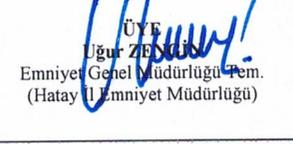 ÜYE
Uğur ZENGİN
Emniyet Genel Müdürlüğü Tem.
(Hatay İl Emniyet Müdürlüğü)